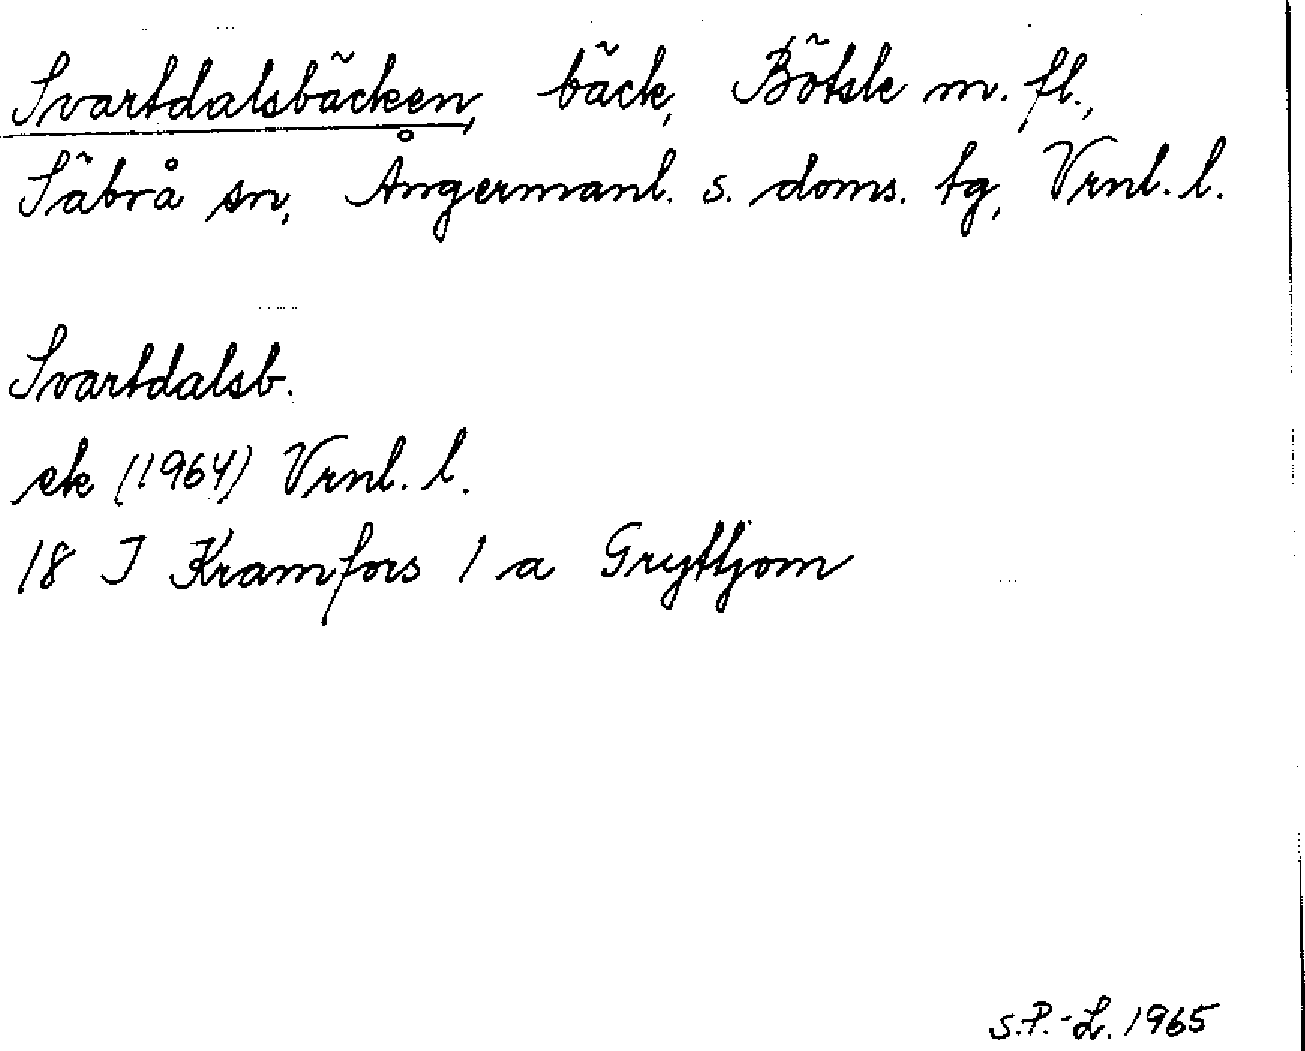 Svartdalsbäcken, bäck, Bötsle m. fl.,
Säbrå sn, Ångermanl. s. doms. tg, Vrnl. l.
Svartdalsb.
ek (1964) Vrnl. l.
18 I Kramfors 1 a Gryttjom
S.P.-L. 1965